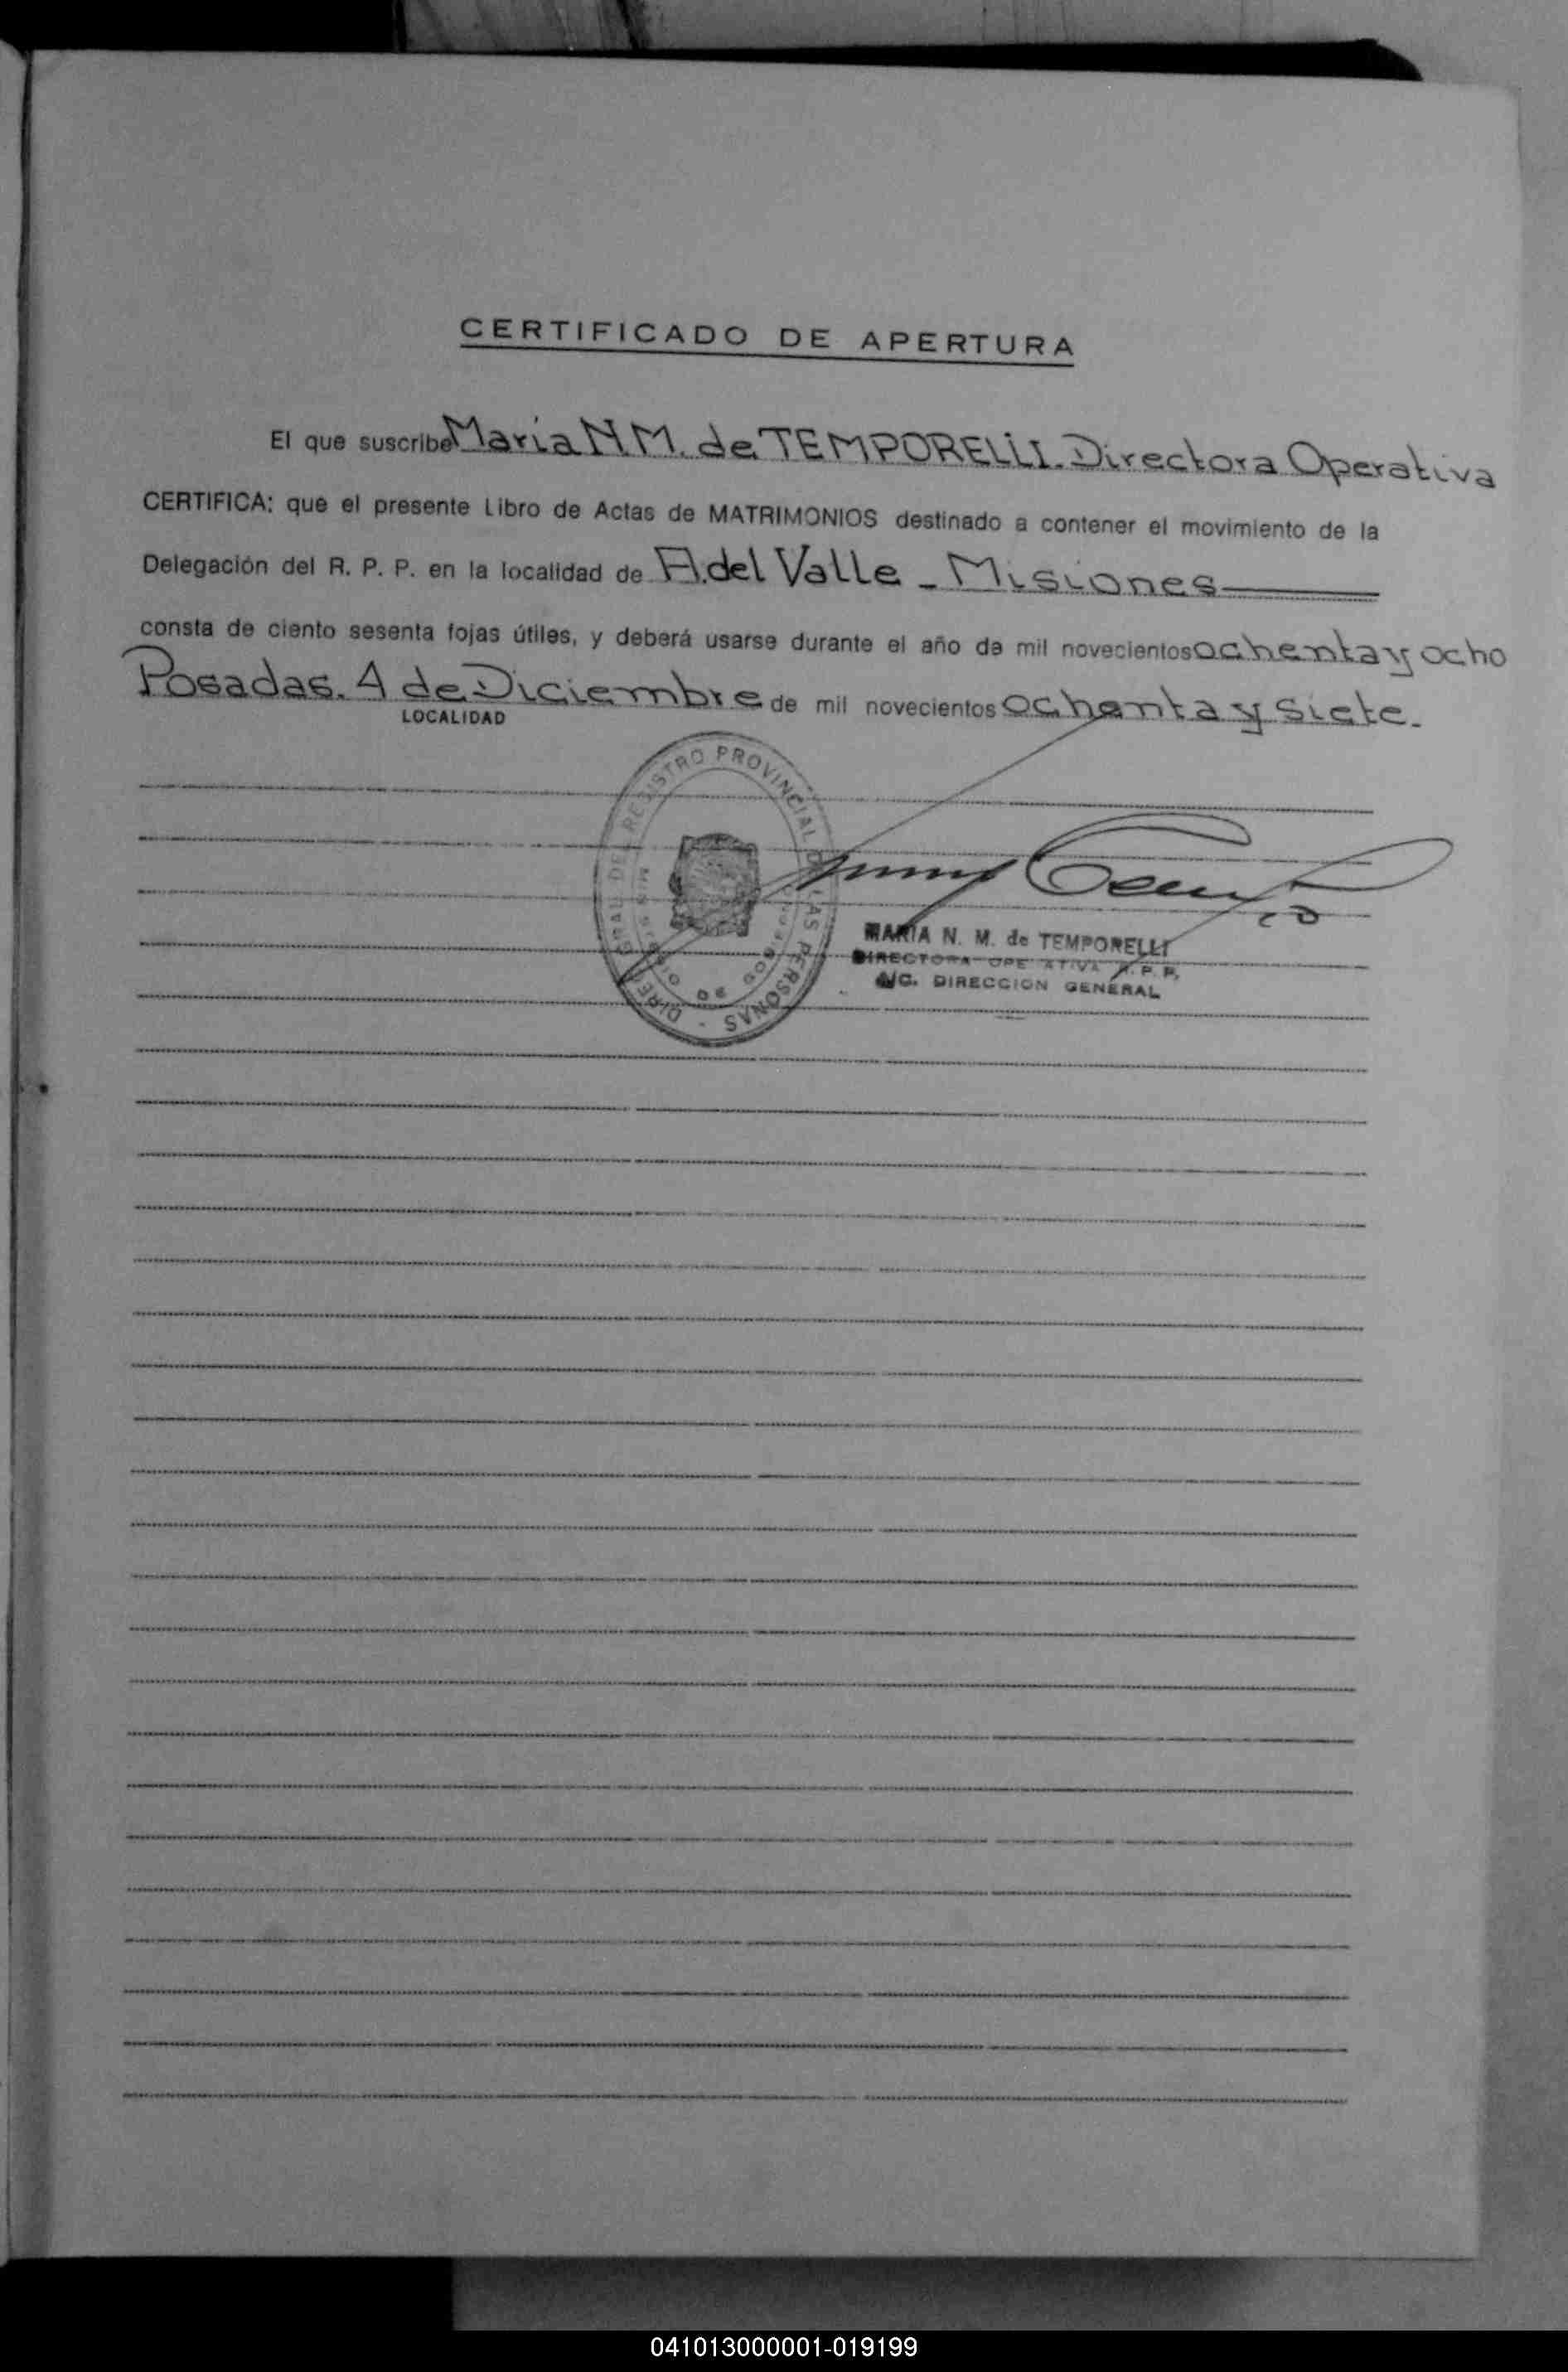 CERTIFICADO DE APERTURA
El que suscribe Maria N.M. de TEMPORELLI. Directora Operativa
CERTIFICA: que el presente Libro de Actas de MATRIMONIOS destinado a contener el movimiento de la
Delegación del R. P. P. en la localidad de A. del Valle - Misiones
consta de ciento sesenta fojas útiles, y deberá usarse durante el año de mil novecientos ochenta y ocho
Posadas. 4 de Diciembre de mil novecientos ochenta y siete.
LOCALIDAD
REGISTRO PROVINCIAL DE LAS PERSONAS -
MARIA N. M. de TEMPORELLI
DIRECTORA OPE ATIVA R. P. P.
A/C. DIRECCION GENERAL
041013000001-019199